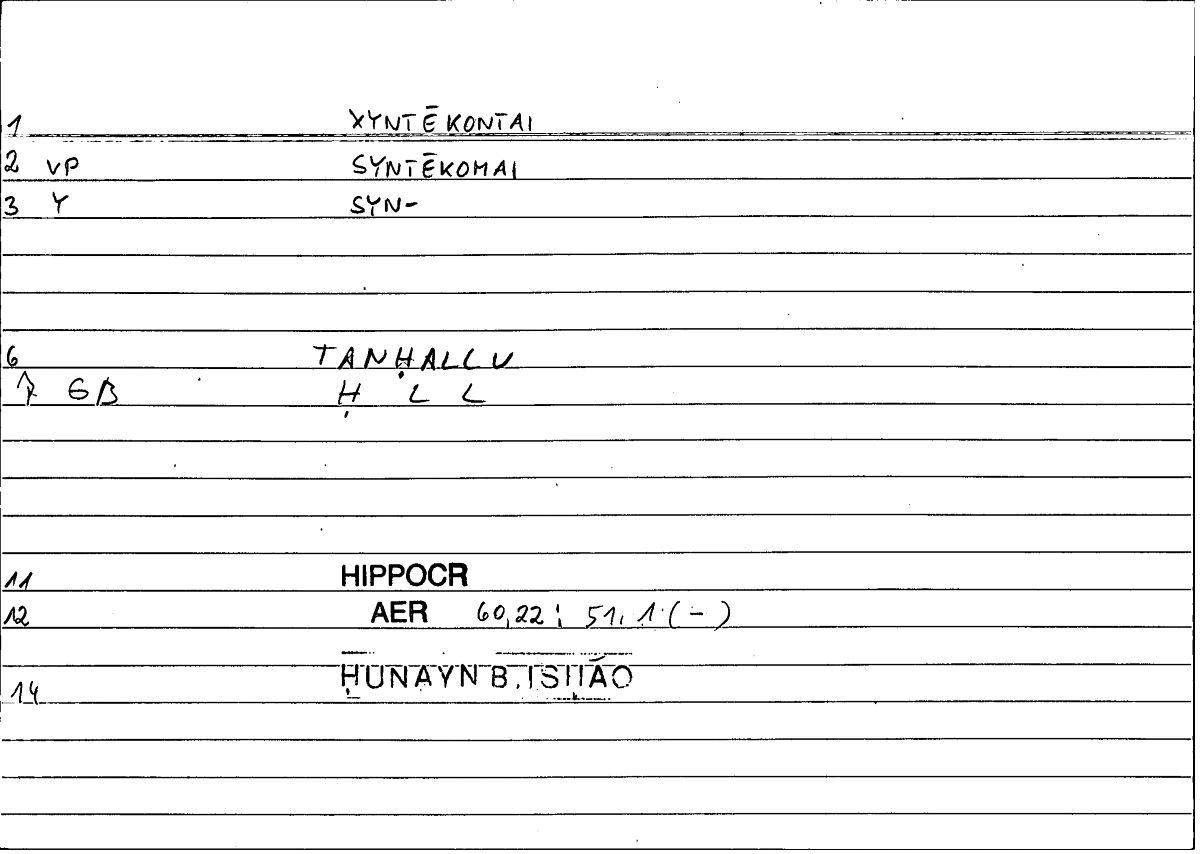 1 XYNTĒKONTAI
2 VP SYNTĒKOMAI
3 Y SYN-
6 TANḤALLU
7 GB Ḥ L L
11 HIPPOCR
12 AER 60,22; 51,1 (-)
14 ḤUNAYN B. ISḤĀQ